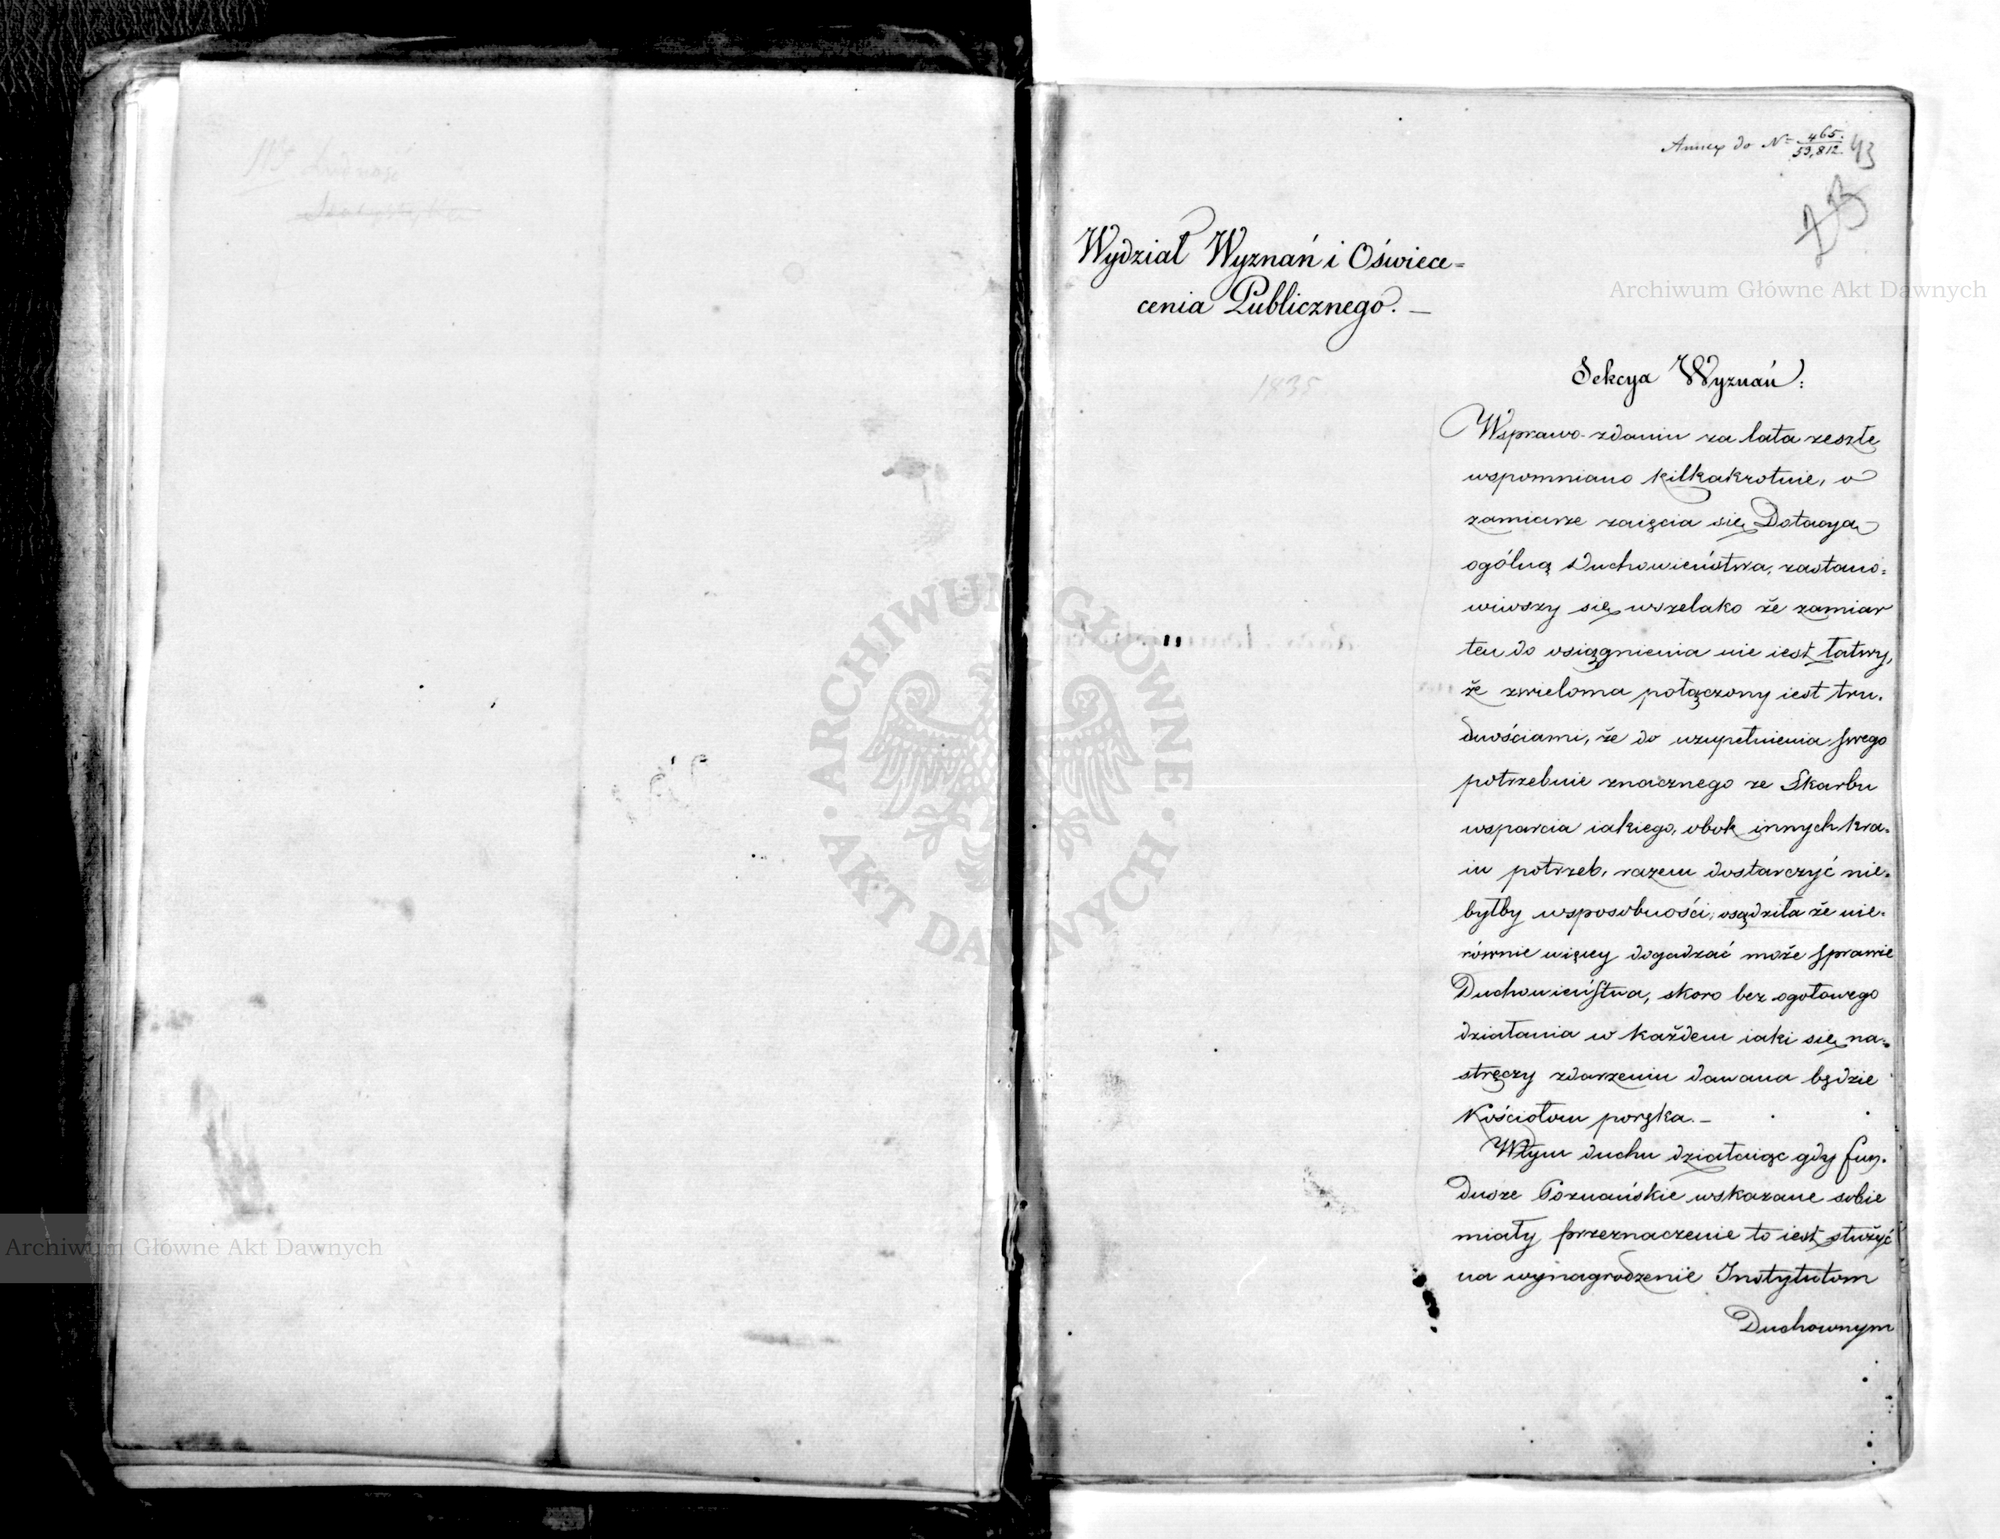 Annex do N= 465.
53,812. 43
23
Wydział Wyznań i Oświece=
cenia Publicznego. —
1835
Sekcya Wyznań:
Wsprawo-zdaniu za lata zeszłe
wspomniano kilkakrotnie, o
zamiarze zaięcia się Dotacyą
ogólną Duchowieństwa, zastano=
wiwszy się wszelako że zamiar
ten do osiągnienia nie iest łatwy,
że zwieloma połączony iest tru=
dnościami, że do uzupełnienia swego
potrzebuie znacznego ze Skarbu
wsparcia iakiego, obok innych kra=
iu potrzeb, razem dostarczyć nie=
byłby wsposobności, osądziła że nie=
równie więcy dogadzać może sprawie
Duchowieństwa, skoro bez ogołowego
działania w każdem iaki się na=
stręczy zdarzeniu dawana będzie
Kościołom poręka. —
Wtym duchu działaiąc gdy fun=
dusze Poznańskie wskazane sobie
miały przeznaczenie to iest służyć
na wynagrodzenie Instytutom
Duchownym
Archiwum Główne Akt Dawnych
Archiwum Główne Akt Dawnych
ARCHIWUM GŁÓWNE · AKT DAWNYCH ·